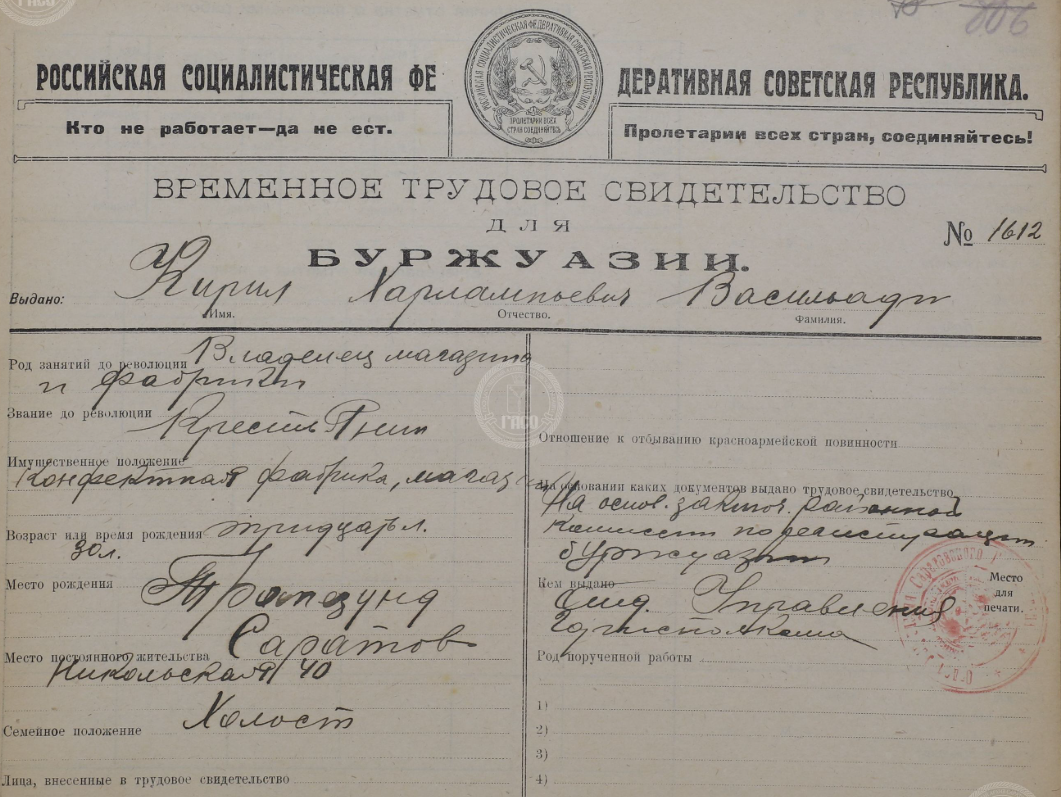 806
РОССИЙСКАЯ СОЦИАЛИСТИЧЕСКАЯ ФЕ ДЕРАТИВНАЯ СОВЕТСКАЯ РЕСПУБЛИКА.
РОССИЙСКАЯ СОЦИАЛИСТИЧЕСКАЯ ФЕДЕРАТИВНАЯ СОВЕТСКАЯ РЕСПУБЛИКА
ПРОЛЕТАРИИ ВСЕХ
СТРАН СОЕДИНЯЙТЕСЬ
Кто не работает—да не ест.
Пролетарии всех стран, соединяйтесь!
ВРЕМЕННОЕ ТРУДОВОЕ СВИДЕТЕЛЬСТВО
ДЛЯ
БУРЖУАЗИИ.
№ 1612
Выдано: Кирил Харлампьевич Васильади
Имя. Отчество. Фамилия.
Род занятий до революции Владелец магазина
и фабрики
Звание до революции Крестьянин
Имущественное положение
Конфектная фабрика, магазин
Возраст или время рождения тридцать л.
30 л.
Место рождения Трапезунд
Место постоянного жительства Саратов
Никольская 40
Семейное положение Холост
Лица, внесенные в трудовое свидетельство
ГАСО
Отношение к отбыванию красноармейской повинности
На основании каких документов выдано трудовое свидетельство
На основ. заключ. районной
комиссии по регистрации
буржуазии
Кем выдано
Управления
Горисполкома
Место
для
печати.
Род порученной работы
1)
2)
3)
4)